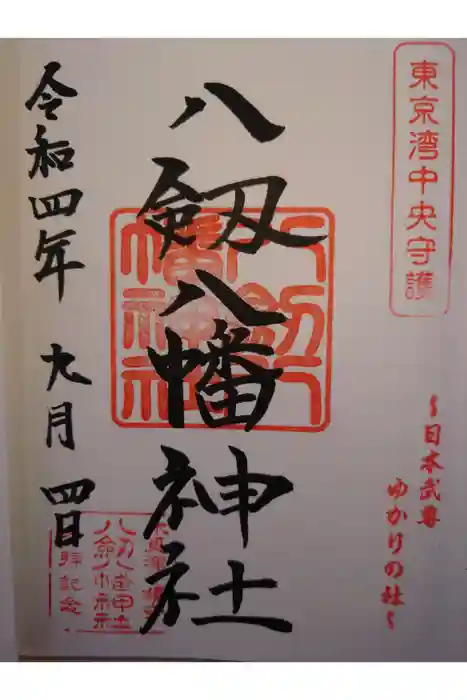 東京湾中央守護
～日本武尊
ゆかりの社～
八剱八幡神社
八剱八幡神社
令和四年 九月 四日
八剱八幡神社
拝記念